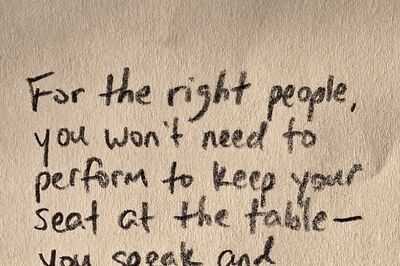 For the right people,
you won't need to
perform to keep your
seat at the table—
you speak and